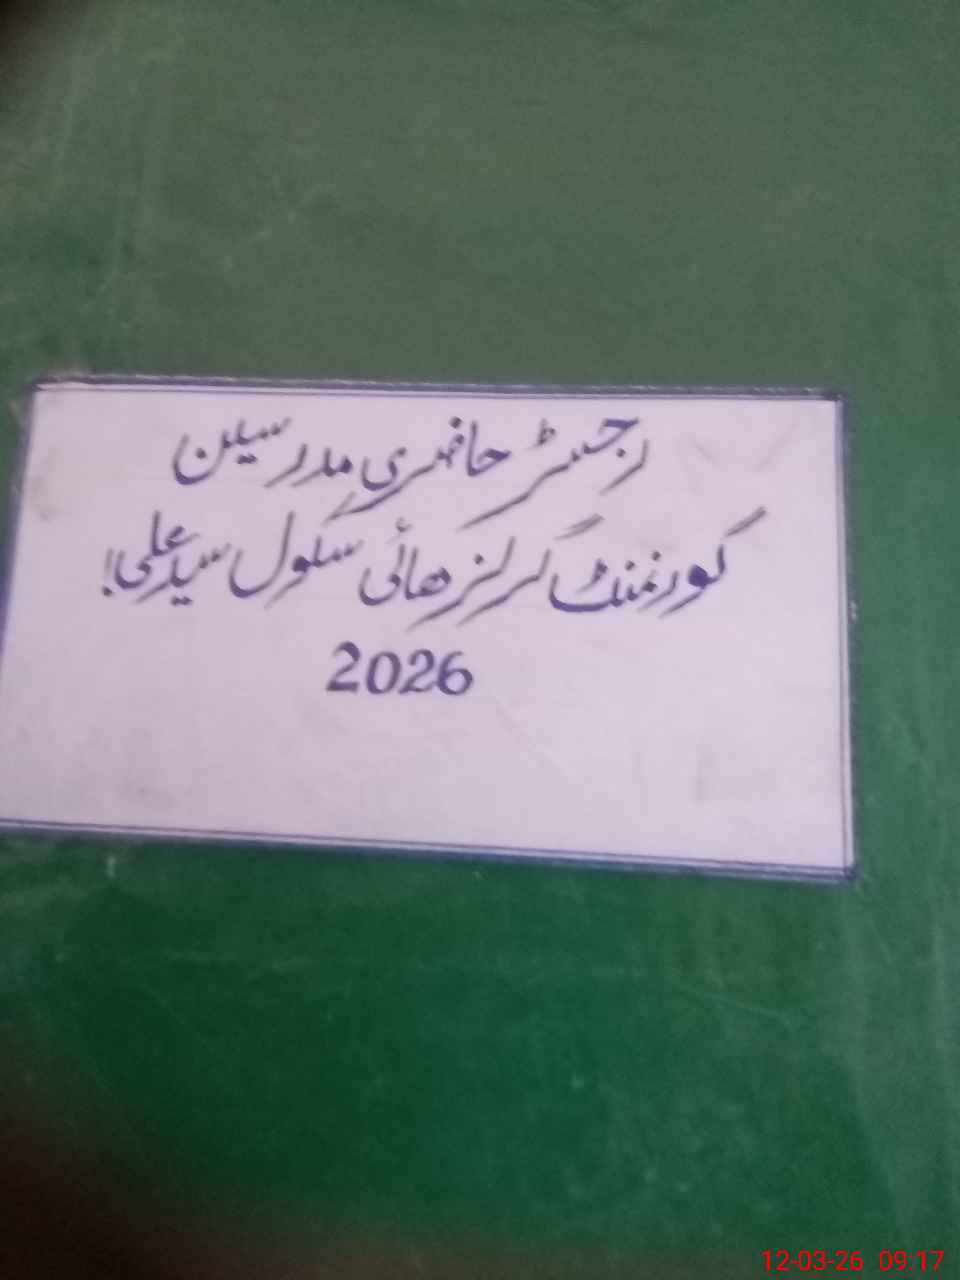 رجسٹر حاضری مدرسین
گورنمنٹ گرلز ھائی سکول سید علی!
2026
12-03-26 09:17